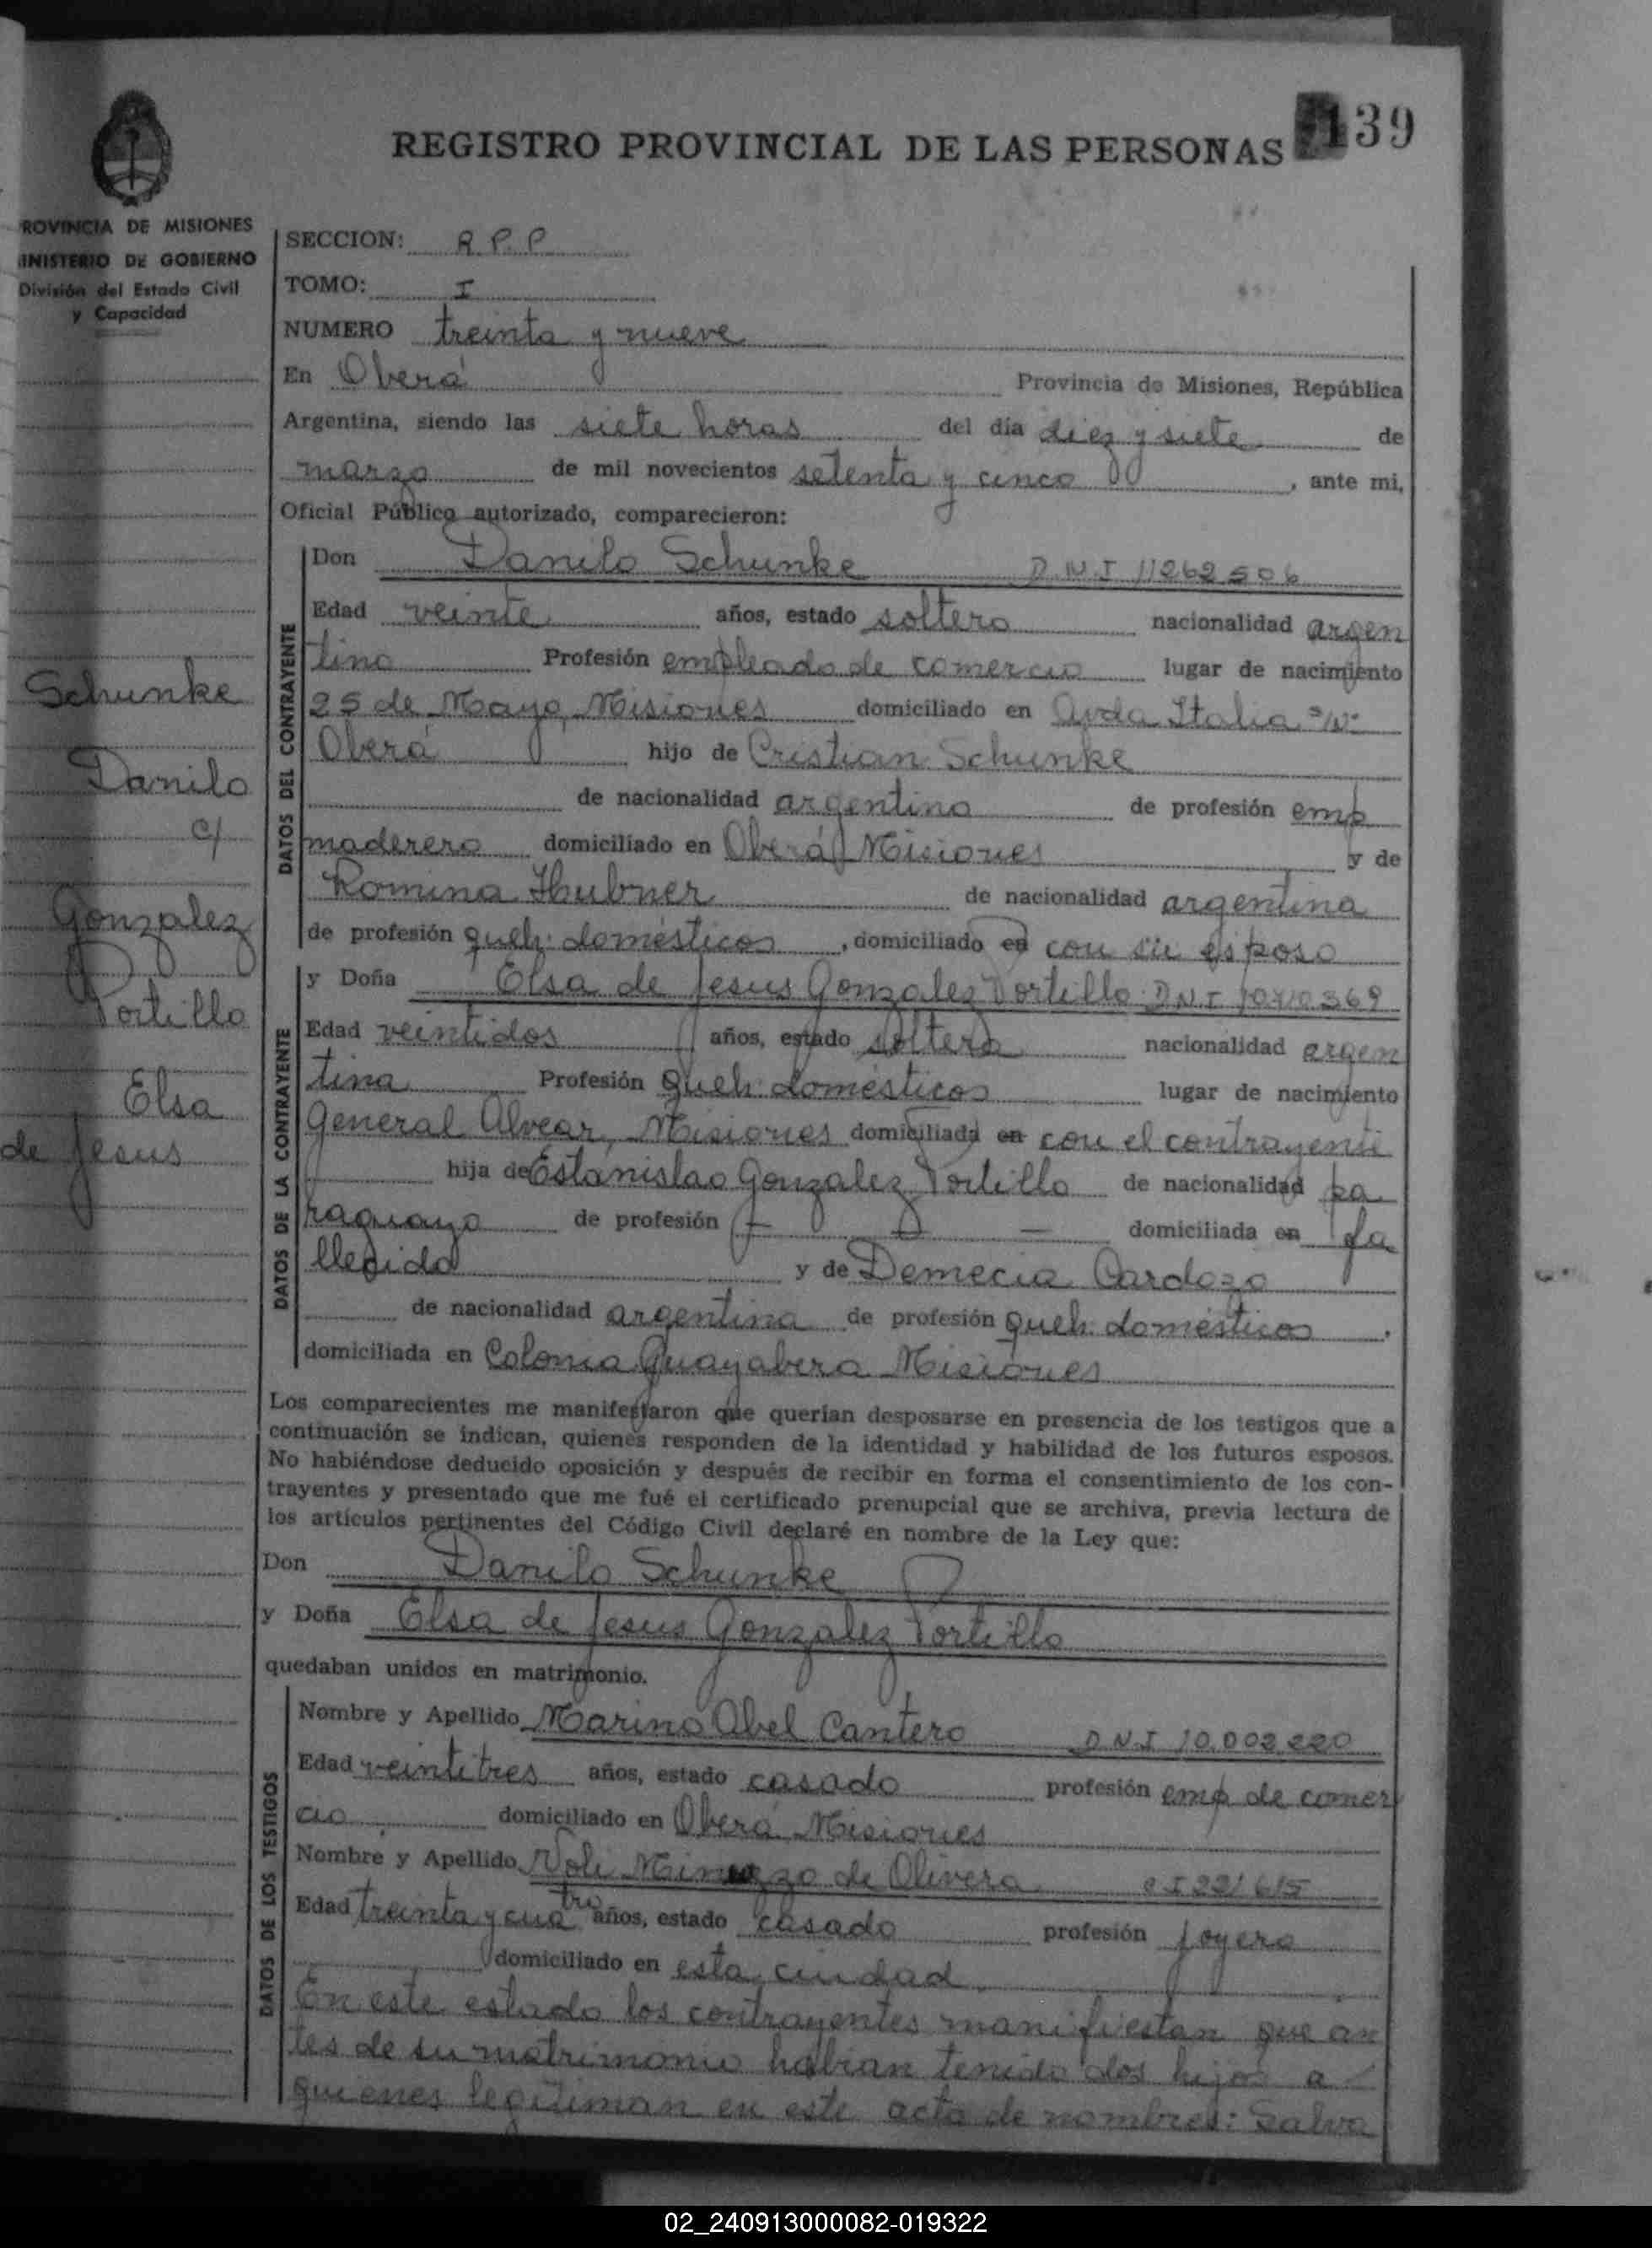 REGISTRO PROVINCIAL DE LAS PERSONAS 139
ROVINCIA DE MISIONES
INISTERIO DE GOBIERNO
División del Estado Civil
y Capacidad
Schunke
Danilo
c/
Gonzalez
Portillo
Elsa
de Jesus
SECCION: R.P.P
TOMO: I
NUMERO treinta y nueve
En Oberá Provincia de Misiones, República
Argentina, siendo las siete horas del día diez y siete de
marzo de mil novecientos setenta y cinco, ante mi,
Oficial Público autorizado, comparecieron:
DATOS DEL CONTRAYENTE
Don Danilo Schunke D.N.I 11262506
Edad veinte años, estado soltero nacionalidad argen
tino Profesión empleado de comercio lugar de nacimiento
25 de Mayo, Misiones domiciliado en Avda Italia s/Nº
Oberá hijo de Cristian Schunke
de nacionalidad argentino de profesión emp
maderero domiciliado en Oberá Misiones y de
Romina Hubner de nacionalidad argentina
de profesión queh. domésticos, domiciliado en con su esposo
DATOS DE LA CONTRAYENTE
y Doña Elsa de Jesus Gonzalez Portillo D.N.I
Edad veintidos años, estado soltera nacionalidad argen
tina Profesión queh. domésticos lugar de nacimiento
General Alvear, Misiones domiciliada en con el contrayente
hija de Estanislao Gonzalez Portillo de nacionalidad pa
raguayo de profesión — — — domiciliada en fa
llecido y de Demecia Cardozo
de nacionalidad argentina de profesión queh. domésticos,
domiciliada en Colonia Guayabera Misiones
Los comparecientes me manifestaron que querían desposarse en presencia de los testigos que a
continuación se indican, quienes responden de la identidad y habilidad de los futuros esposos.
No habiéndose deducido oposición y después de recibir en forma el consentimiento de los con-
trayentes y presentado que me fué el certificado prenupcial que se archiva, previa lectura de
los artículos pertinentes del Código Civil declaré en nombre de la Ley que:
Don Danilo Schunke
y Doña Elsa de Jesus Gonzalez Portillo
quedaban unidos en matrimonio.
DATOS DE LOS TESTIGOS
Nombre y Apellido Marino Abel Cantero D.N.I 10.002.220
Edad veintitres años, estado casado profesión emp de comer
cio domiciliado en Oberá Misiones
Nombre y Apellido de Olivera
Edad treinta y cuatro años, estado casado profesión joyero
domiciliado en esta ciudad
En este estado los contrayentes manifiestan que an
tes de su matrimonio habian tenido dos hijos a
quienes legitiman en este acto de nombres: Salva
02_240913000082-019322